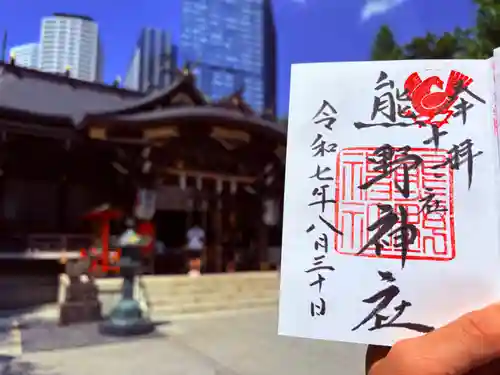 奉拝
十二社
熊野神社
令和七年八月三十日